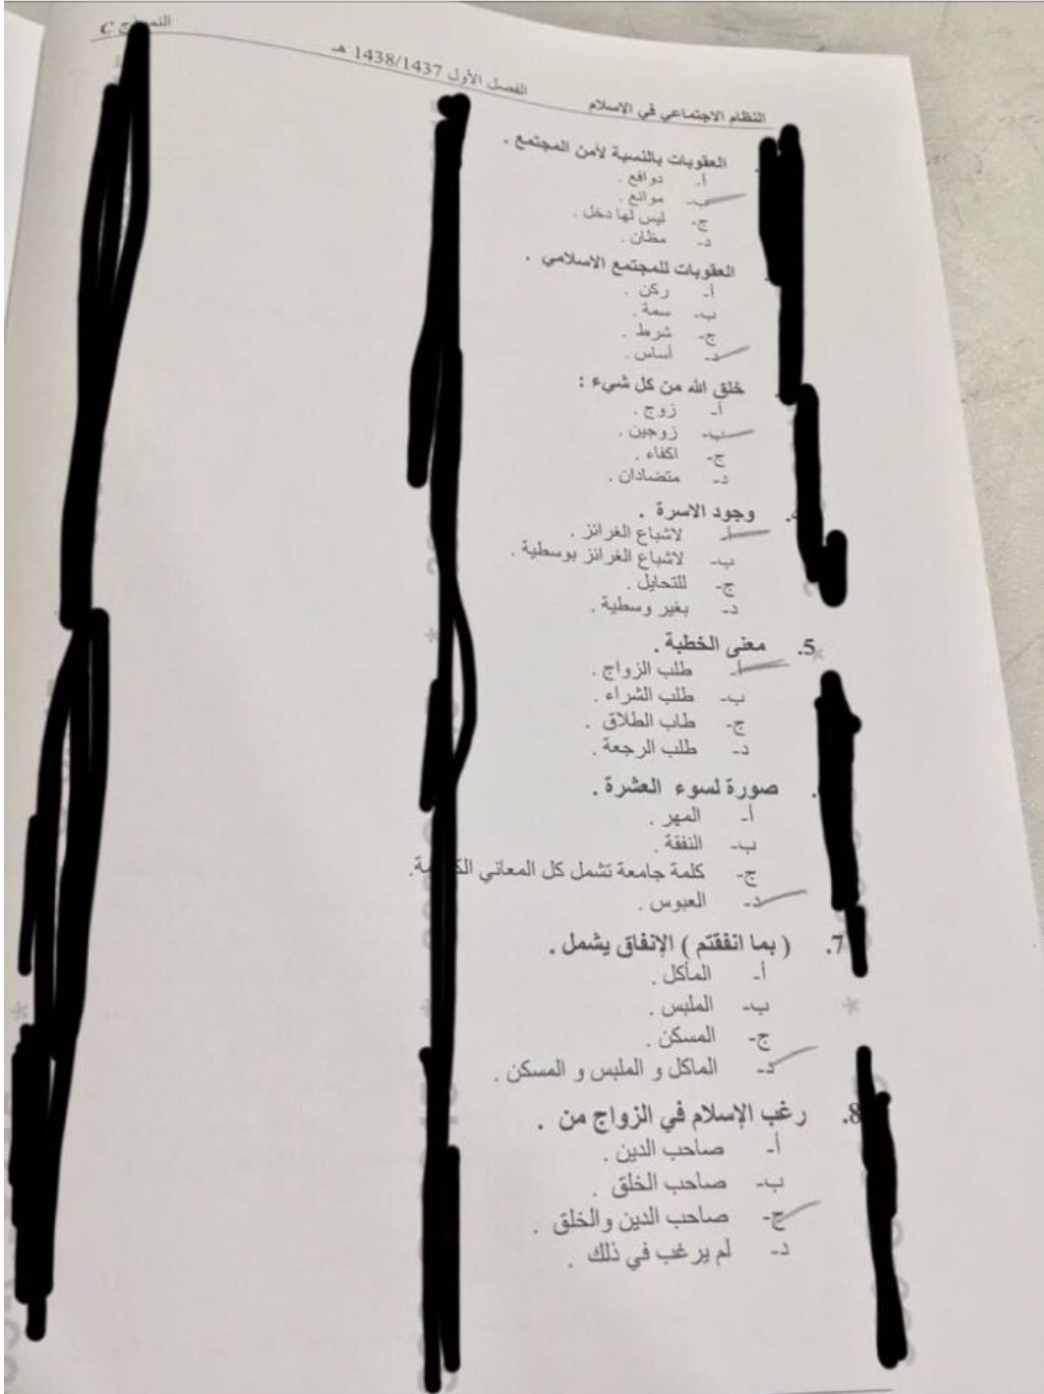 النموذج C
الفصل الأول 1438/1437 هـ
النظام الاجتماعي في الاسلام
العقوبات بالنسبة لأمن المجتمع .
أ- دوافع .
ب- موانع .
ج- ليس لها دخل .
د- مظان .
العقوبات للمجتمع الاسلامي .
أ- ركن .
ب- سمة .
ج- شرط .
د- أساس .
خلق الله من كل شيء :
أ- زوج .
ب- زوجين .
ج- اكفاء .
د- متضادان .
وجود الاسرة .
أ- لاشباع الغرائز .
ب- لاشباع الغرائز بوسطية .
ج- للتحايل .
د- بغير وسطية .
5. معنى الخطبة .
أ- طلب الزواج .
ب- طلب الشراء .
ج- طاب الطلاق .
د- طلب الرجعة .
صورة لسوء العشرة .
أ- المهر .
ب- النفقة .
ج- كلمة جامعة تشمل كل المعاني
د- العبوس .
7. ( بما انفقتم ) الإنفاق يشمل .
أ- المأكل .
ب- الملبس .
ج- المسكن .
د- الماكل و الملبس و المسكن .
8. رغب الإسلام في الزواج من .
أ- صاحب الدين .
ب- صاحب الخلق .
ج- صاحب الدين والخلق .
د- لم يرغب في ذلك .